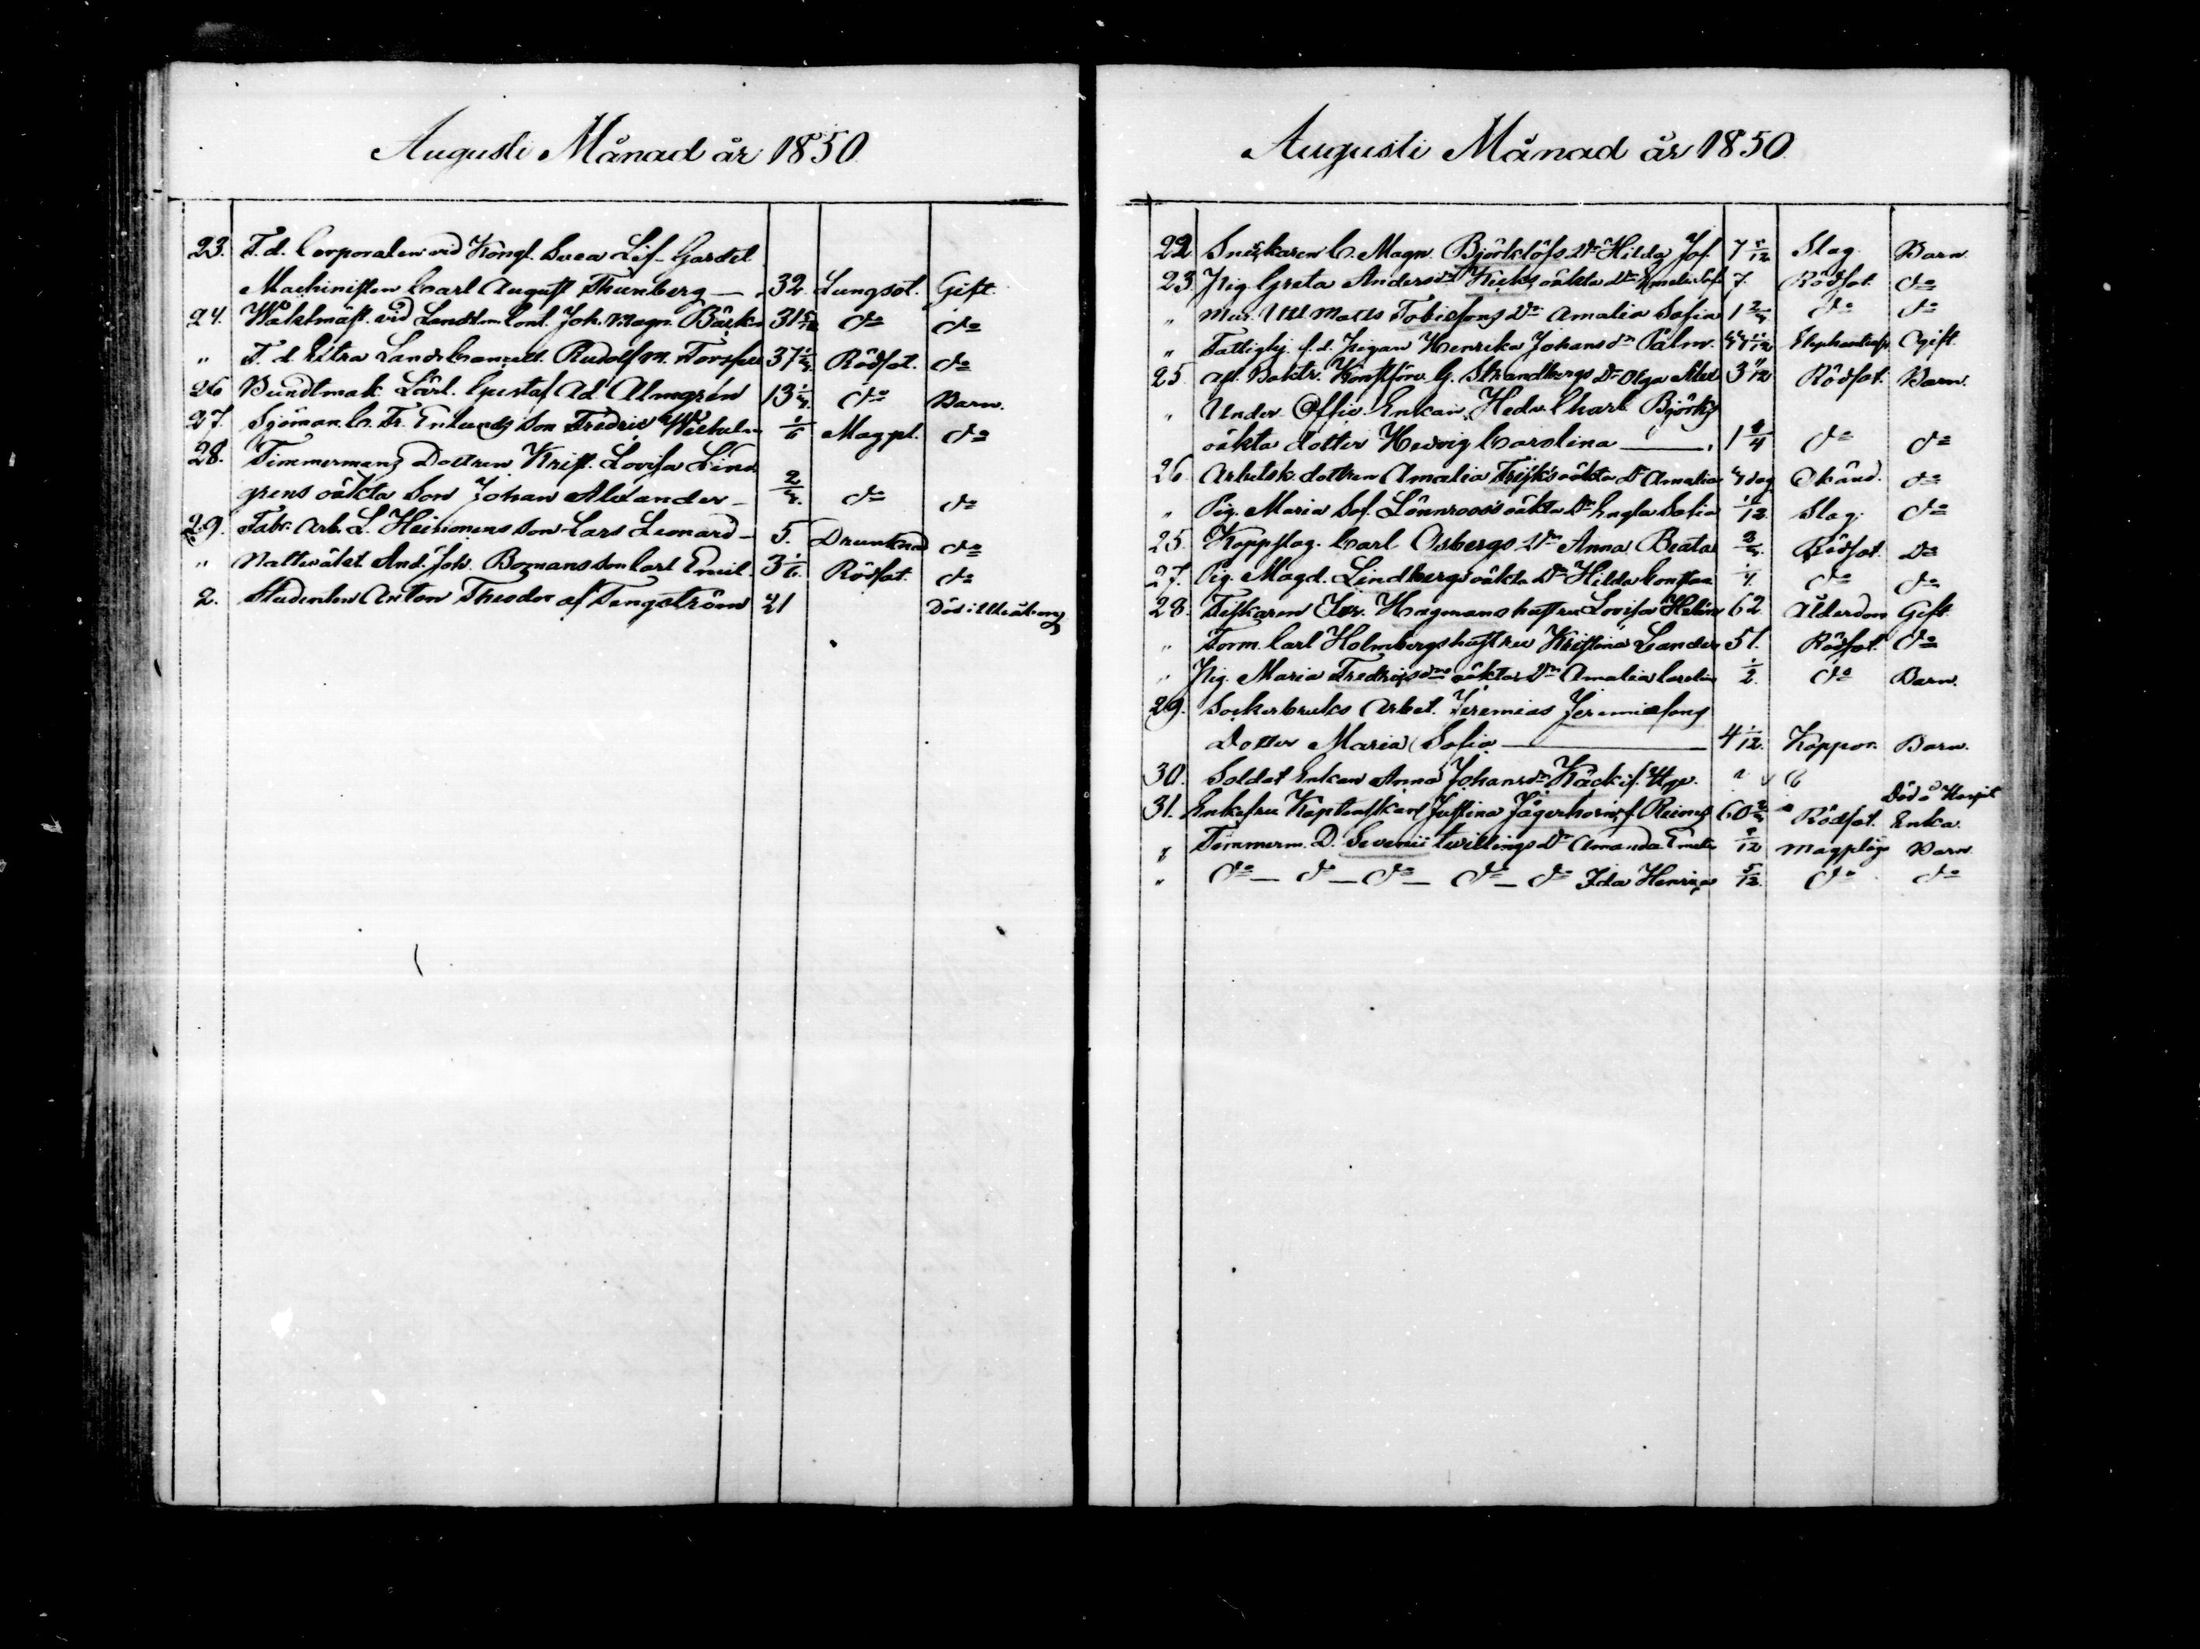 Augusti Månad år 1850.
23. F.d. Corporalen vid Kongl. Svea Lif-Gardet
Machinisten Carl August Thunberg — 32. Lungsot. Gift.
24. Waktmäst. vid Landtm. Cont. Joh. Magn. Bäck 31 5/12 do do
" F.d. Extra Lands Rudolf M. Forss 37 Rödsot. do
26 Bundtmak. Lärl. Gustaf Ad. Almgrén 13 do Barn.
27. Sjöman. C. Fr. Enlunds Son Fredric Wilhelm 1/6 Magpl. do
28. Timmermans Dottren Krist. Lovisa Lind
grens oäkta Son Johan Alexander — do do
29. Fabr. Arb. L. Heinonens Son Lars Leonard — 5. Drunknad do
" Nattväkt. And. Joh. Bomans Son Carl Emil. 3 1/6. Rödsot. do
2. Studenten Anton Theodor af Tengström 21 Död i Uleåborg
Augusti Månad år 1850.
22 Snickaren C. Magn. Björklöfs Dr Hilda Jos. 7 Slag. Barn.
23 Pig. Greta Andersdr oäkta Dr 7. Rödsot. do
" Mur. Matts Tobiesons Dr Amalia Sofia 1 do do
" Fattighj. f.d. Pigan Henrika Johansdr Palm. Elephantias Ogift.
25 afl. Boktr. Konstförv. G. Strandbergs Dr Olga Alex 3 11/12 Rödsot. Barn.
" Under Offic. Enkan Hedv. Charl. Björks
oäkta dotter Hedvig Carolina — 1 do do
26 Arbetsk. dottren Amalia oäkta Dr Amalia dag Okänd. do
" Pig. Maria Sof. Lönnroos's oäkta Dr Engla Sofia 1/12 Slag. do
25. Koppslag. Carl Osbergs Dr Anna Beata Rödsot. Do
27. Pig. Magd. Lindbergs oäkta Dr Hilda do do
28. Fiskaren Hagmans hustru Lovisa 62 Ålderdom Gift.
" Form. Carl Holmbergs hustru Kristina Lander 51. Rödsot. do
" Pig. Maria Fredriksdrs oäkta Dr Amalia Carolin 1/2. do Barn.
29. Sockerbruks Arbet. Jeremias Jeremiesons
Dotter Maria Sofia — 4 1/12. Koppor. Barn.
30. Soldat Enkan Anna Johansdr
Död å Hospit
31. Enkefru Kaptenskan Justina Jägerhorn, f. 60 Rödsot. Enka.
" Timmerm. D. Sevenii twillings Dr Amanda 5/12 Magplåg Barn
" do — do — do — do — do Ida Henrica 5/12. do do